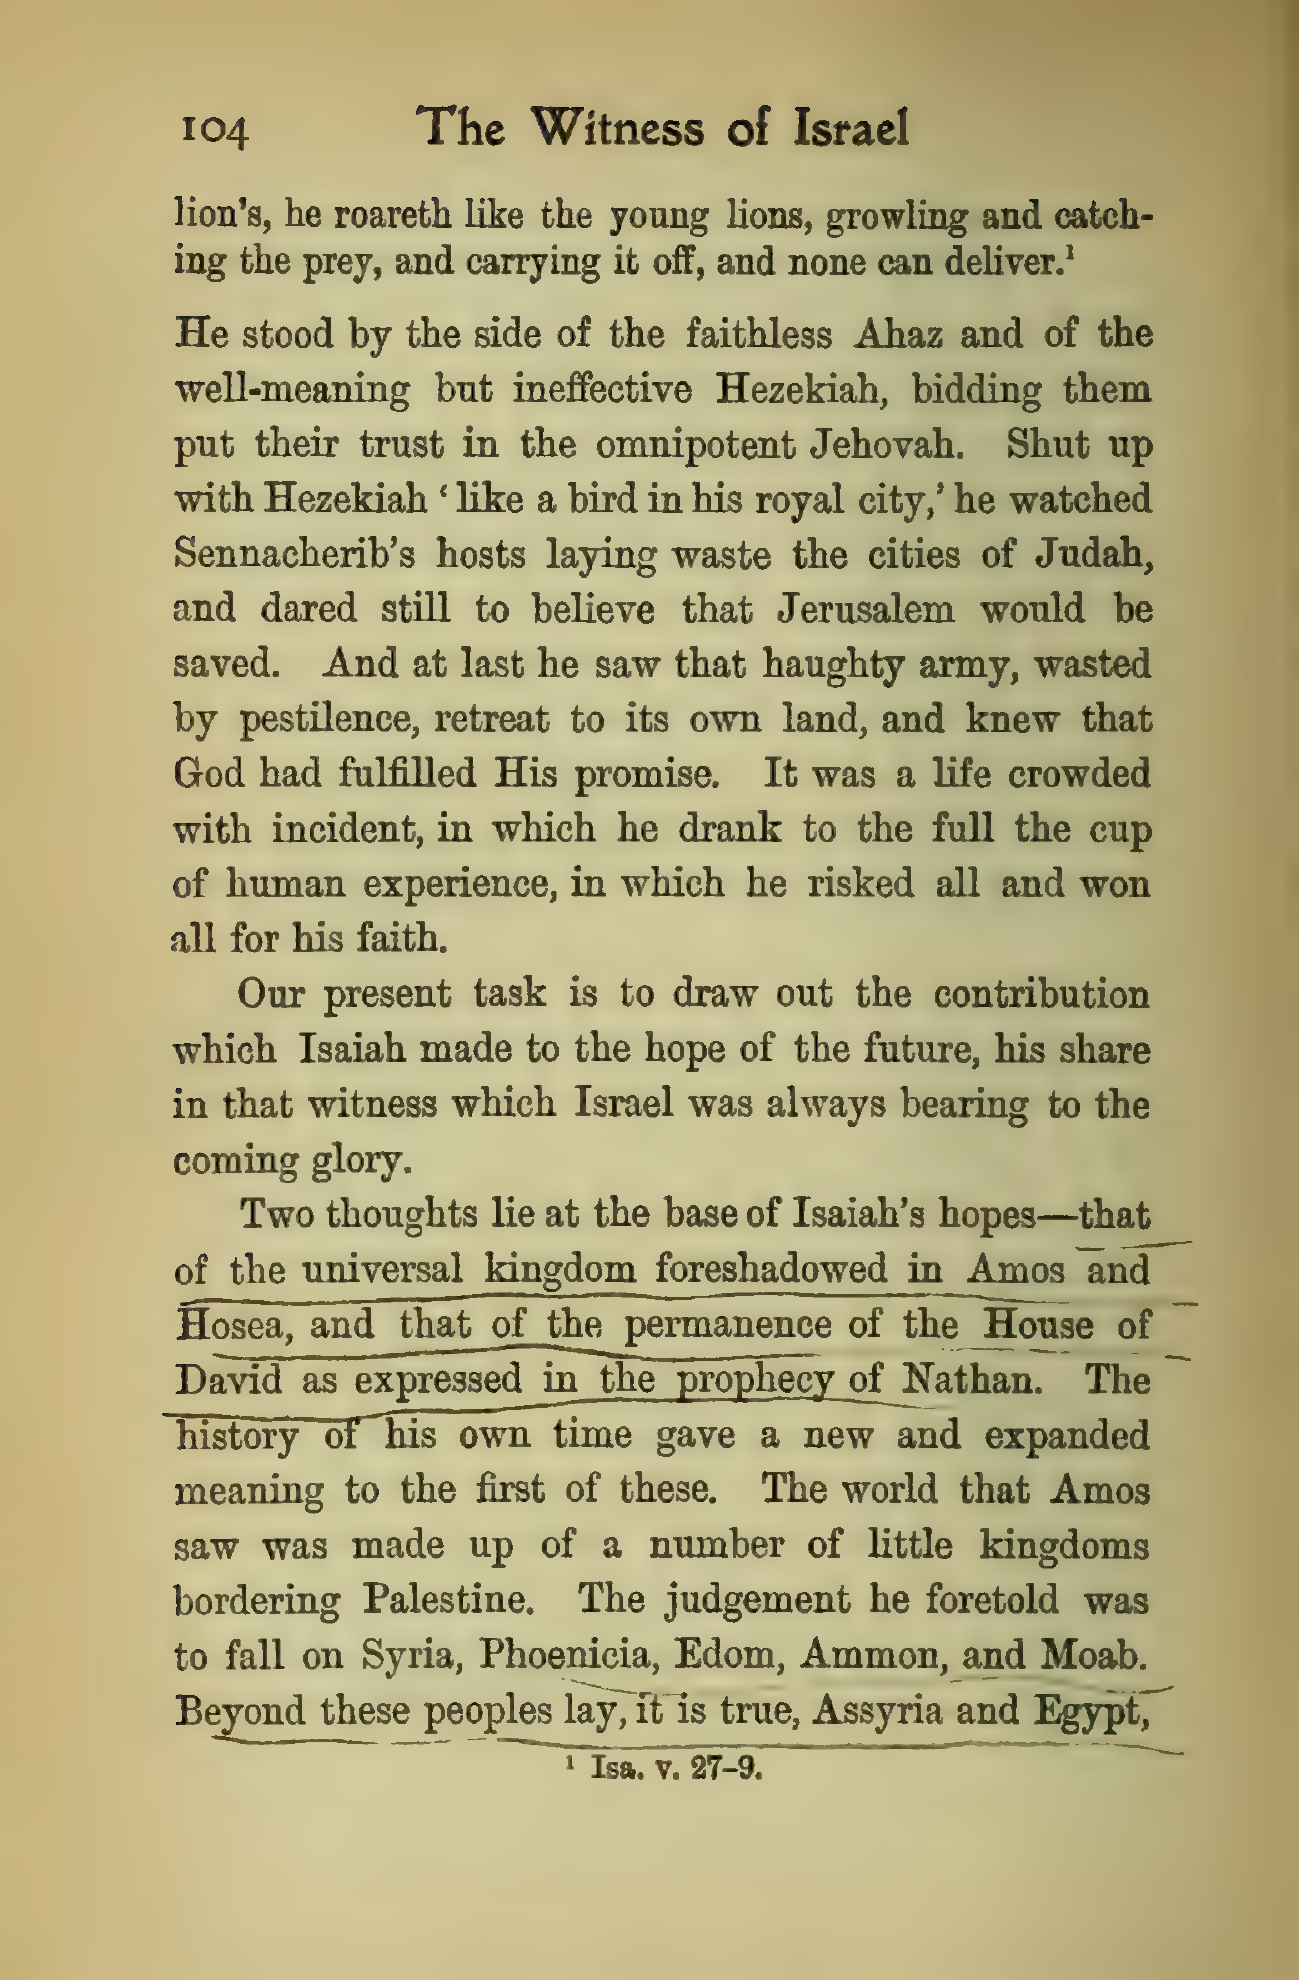 104 The Witness of Israel
lion's, he roareth like the young lions, growling and catch-
ing the prey, and carrying it off, and none can deliver.¹
He stood by the side of the faithless Ahaz and of the
well-meaning but ineffective Hezekiah, bidding them
put their trust in the omnipotent Jehovah. Shut up
with Hezekiah ‘like a bird in his royal city,’ he watched
Sennacherib's hosts laying waste the cities of Judah,
and dared still to believe that Jerusalem would be
saved. And at last he saw that haughty army, wasted
by pestilence, retreat to its own land, and knew that
God had fulfilled His promise. It was a life crowded
with incident, in which he drank to the full the cup
of human experience, in which he risked all and won
all for his faith.
Our present task is to draw out the contribution
which Isaiah made to the hope of the future, his share
in that witness which Israel was always bearing to the
coming glory.
Two thoughts lie at the base of Isaiah's hopes—that
of the universal kingdom foreshadowed in Amos and
Hosea, and that of the permanence of the House of
David as expressed in the prophecy of Nathan. The
history of his own time gave a new and expanded
meaning to the first of these. The world that Amos
saw was made up of a number of little kingdoms
bordering Palestine. The judgement he foretold was
to fall on Syria, Phoenicia, Edom, Ammon, and Moab.
Beyond these peoples lay, it is true, Assyria and Egypt,
¹ Isa. v. 27-9.